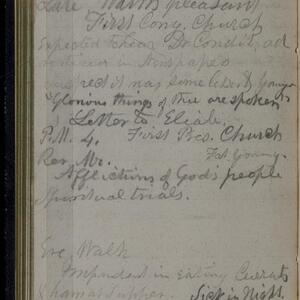 Late Warm & pleasant
First Cong. Church
Expected to hear Dr Condit, ad
in Newspaper
it was some
"Glorious things of thee are spoken
Letter to Eliab.
P.M. 4. First Pres. Church
Rev. Mr. Fat. Young.
Afflictions of God's people
Spiritual trials.
Eve. Walk
Imprudent in Eating
Supper. Sick in Night